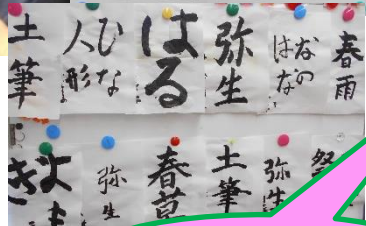 土筆
ひな
人形
はる
弥生
なの
はな
春雨
弥生
春草
土筆
弥生